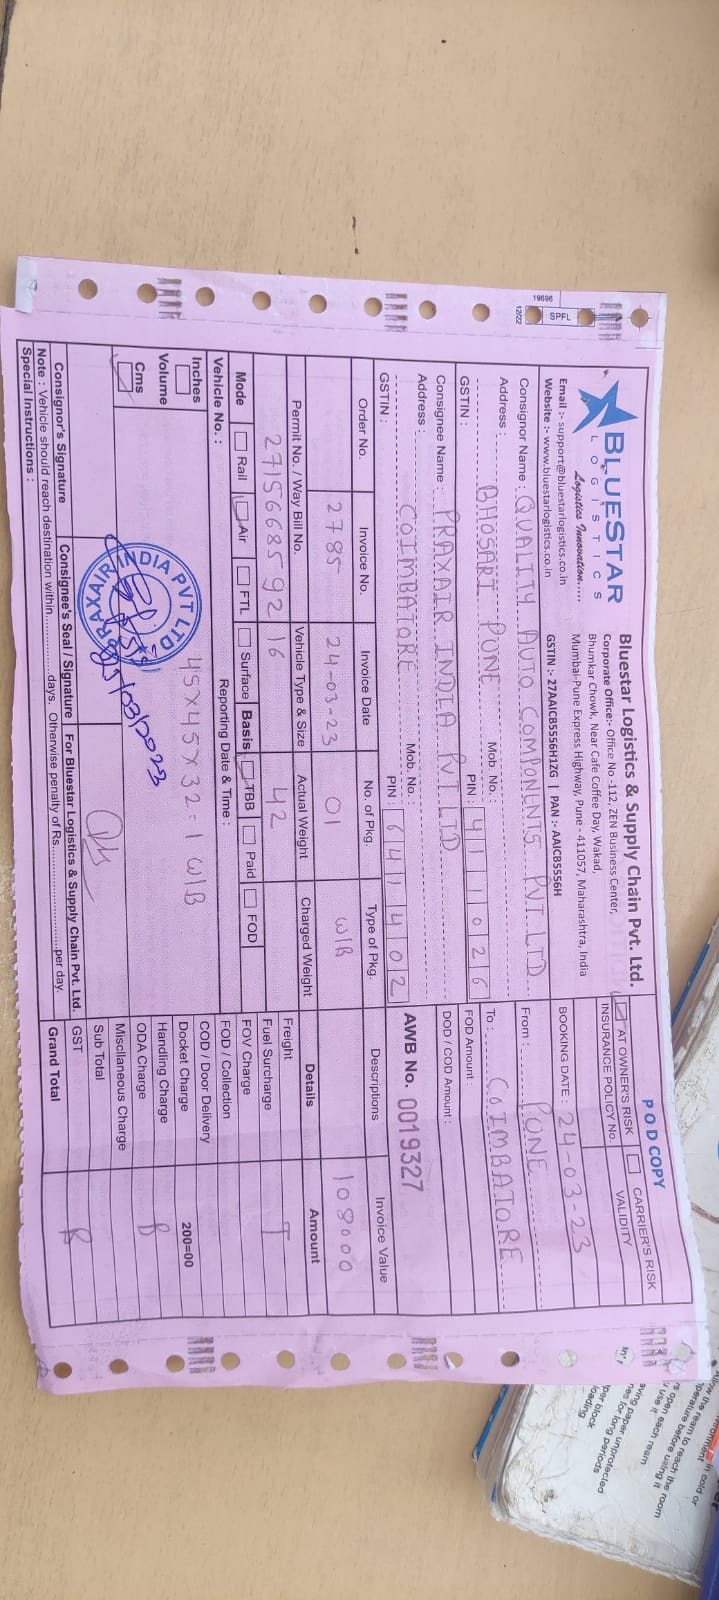 POD COPY
BLUESTAR
LOGISTICS
Logistics Innovation.....
Email :- support@bluestarlogistics.co.in
Website :- www.bluestarlogistics.co.in
Bluestar Logistics & Supply Chain Pvt. Ltd.
Corporate Office:- Office No -112, ZEN Business Center,
Bhumkar Chowk, Near Cafe Coffee Day, Wakad,
Mumbai-Pune Express Highway, Pune - 411057, Maharashtra, India
GSTIN :- 27AAICB5556H1ZG | PAN :- AAICB5556H
AT OWNER'S RISK CARRIER'S RISK
INSURANCE POLICY No. VALIDITY
BOOKING DATE : 24-03-23
Consignor Name : QUALITY AUTO COMPONENTS PVT LTD
Address :
BHOSARI PUNE Mob. No. :
GSTIN : PIN : 411026
From : PUNE
To : COIMBATORE
FOD Amount :
DOD / COD Amount :
Consignee Name : PRAXAIR INDIA PVT LTD
Address :
COIMBATORE Mob. No. :
GSTIN : PIN : 641402
AWB No. 0019327
Order No. Invoice No. Invoice Date No. of Pkg. Type of Pkg. Descriptions Invoice Value
2785 24-03-23 01 W/B 108000
Permit No. / Way Bill No. Vehicle Type & Size Actual Weight Charged Weight Details Amount
2715668592 16 42
Mode Rail Air FTL Surface Basis TBB Paid FOD
Vehicle No. : Reporting Date & Time :
Inches
Volume
Cms
45x45x32=1 W/B
PRAXAIR INDIA PVT LTD
25/03/2023
Freight T
Fuel Surcharge
FOV Charge
FOD / Collection
COD / Door Delivery
Docket Charge 200=00
Handling Charge B
ODA Charge
Miscllaneous Charge
Sub Total
GST B
Grand Total
Consignor's Signature Consignee's Seal / Signature For Bluestar Logistics & Supply Chain Pvt. Ltd.
Note : Vehicle should reach destination within...............days. Otherwise penalty of Rs..........................per day.
Special Instructions :
19696
SPFL
12/22
in cold or
Allow the ream to reach the room
perature before using it
open each ream
use it
aving paper unprotected
for long periods
per block
loading